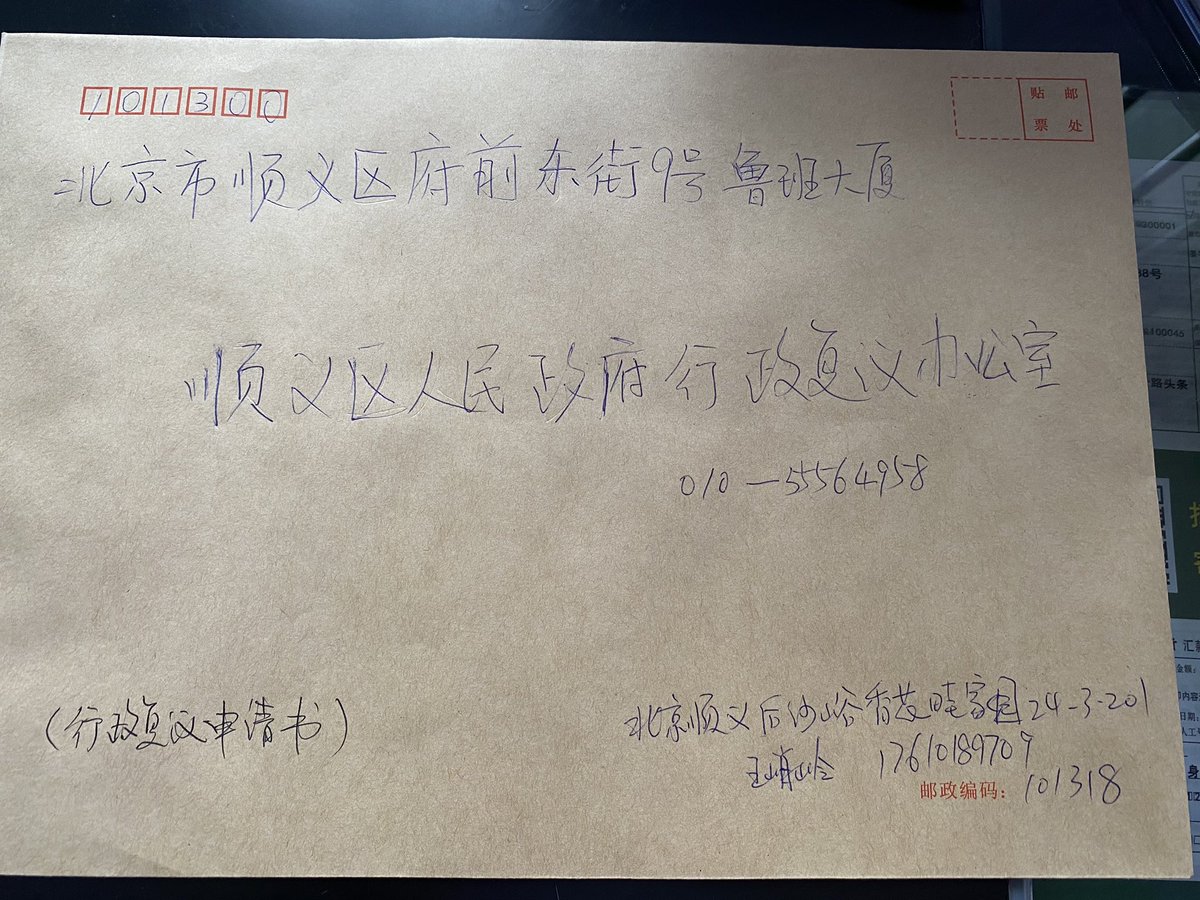 101300
贴 邮
票 处
北京市顺义区府前东街9号鲁班大厦
顺义区人民政府行政复议办公室
010-55564958
(行政复议申请书)
北京顺义后沙峪香花畦家园24-3-201
王峭岭 17610189709
邮政编码: 101318
200001
88号
100045
路头条
汇款
金额:
日期: